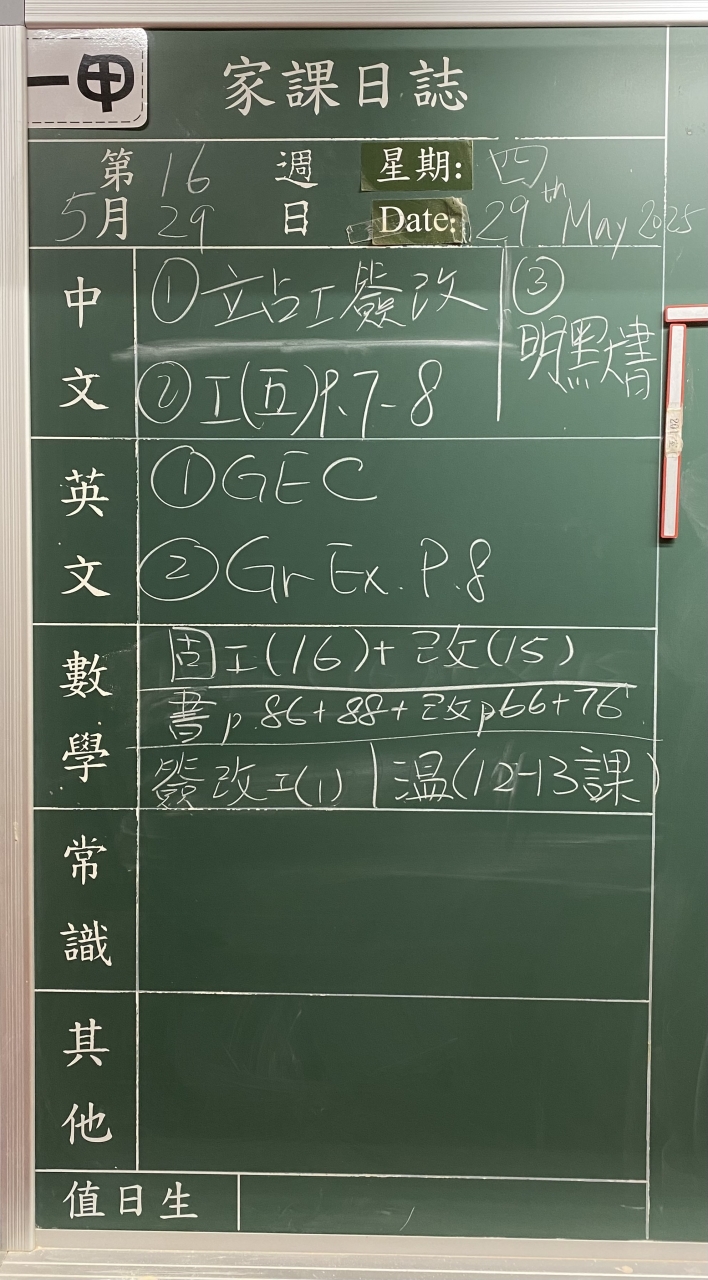 一甲
家課日誌
第 16 週 星期: 四
5月 29 日 Date: 29th May 2025
中文
① 立占工簽改
② 工(五)P.7-8
③
明黑書
英文
① GEC
② Gr Ex. P.8
數學
固工(16)+改(15)
書p.86+88+改p66+76
簽改工(1) | 溫(12-13課)
常識
其他
值日生